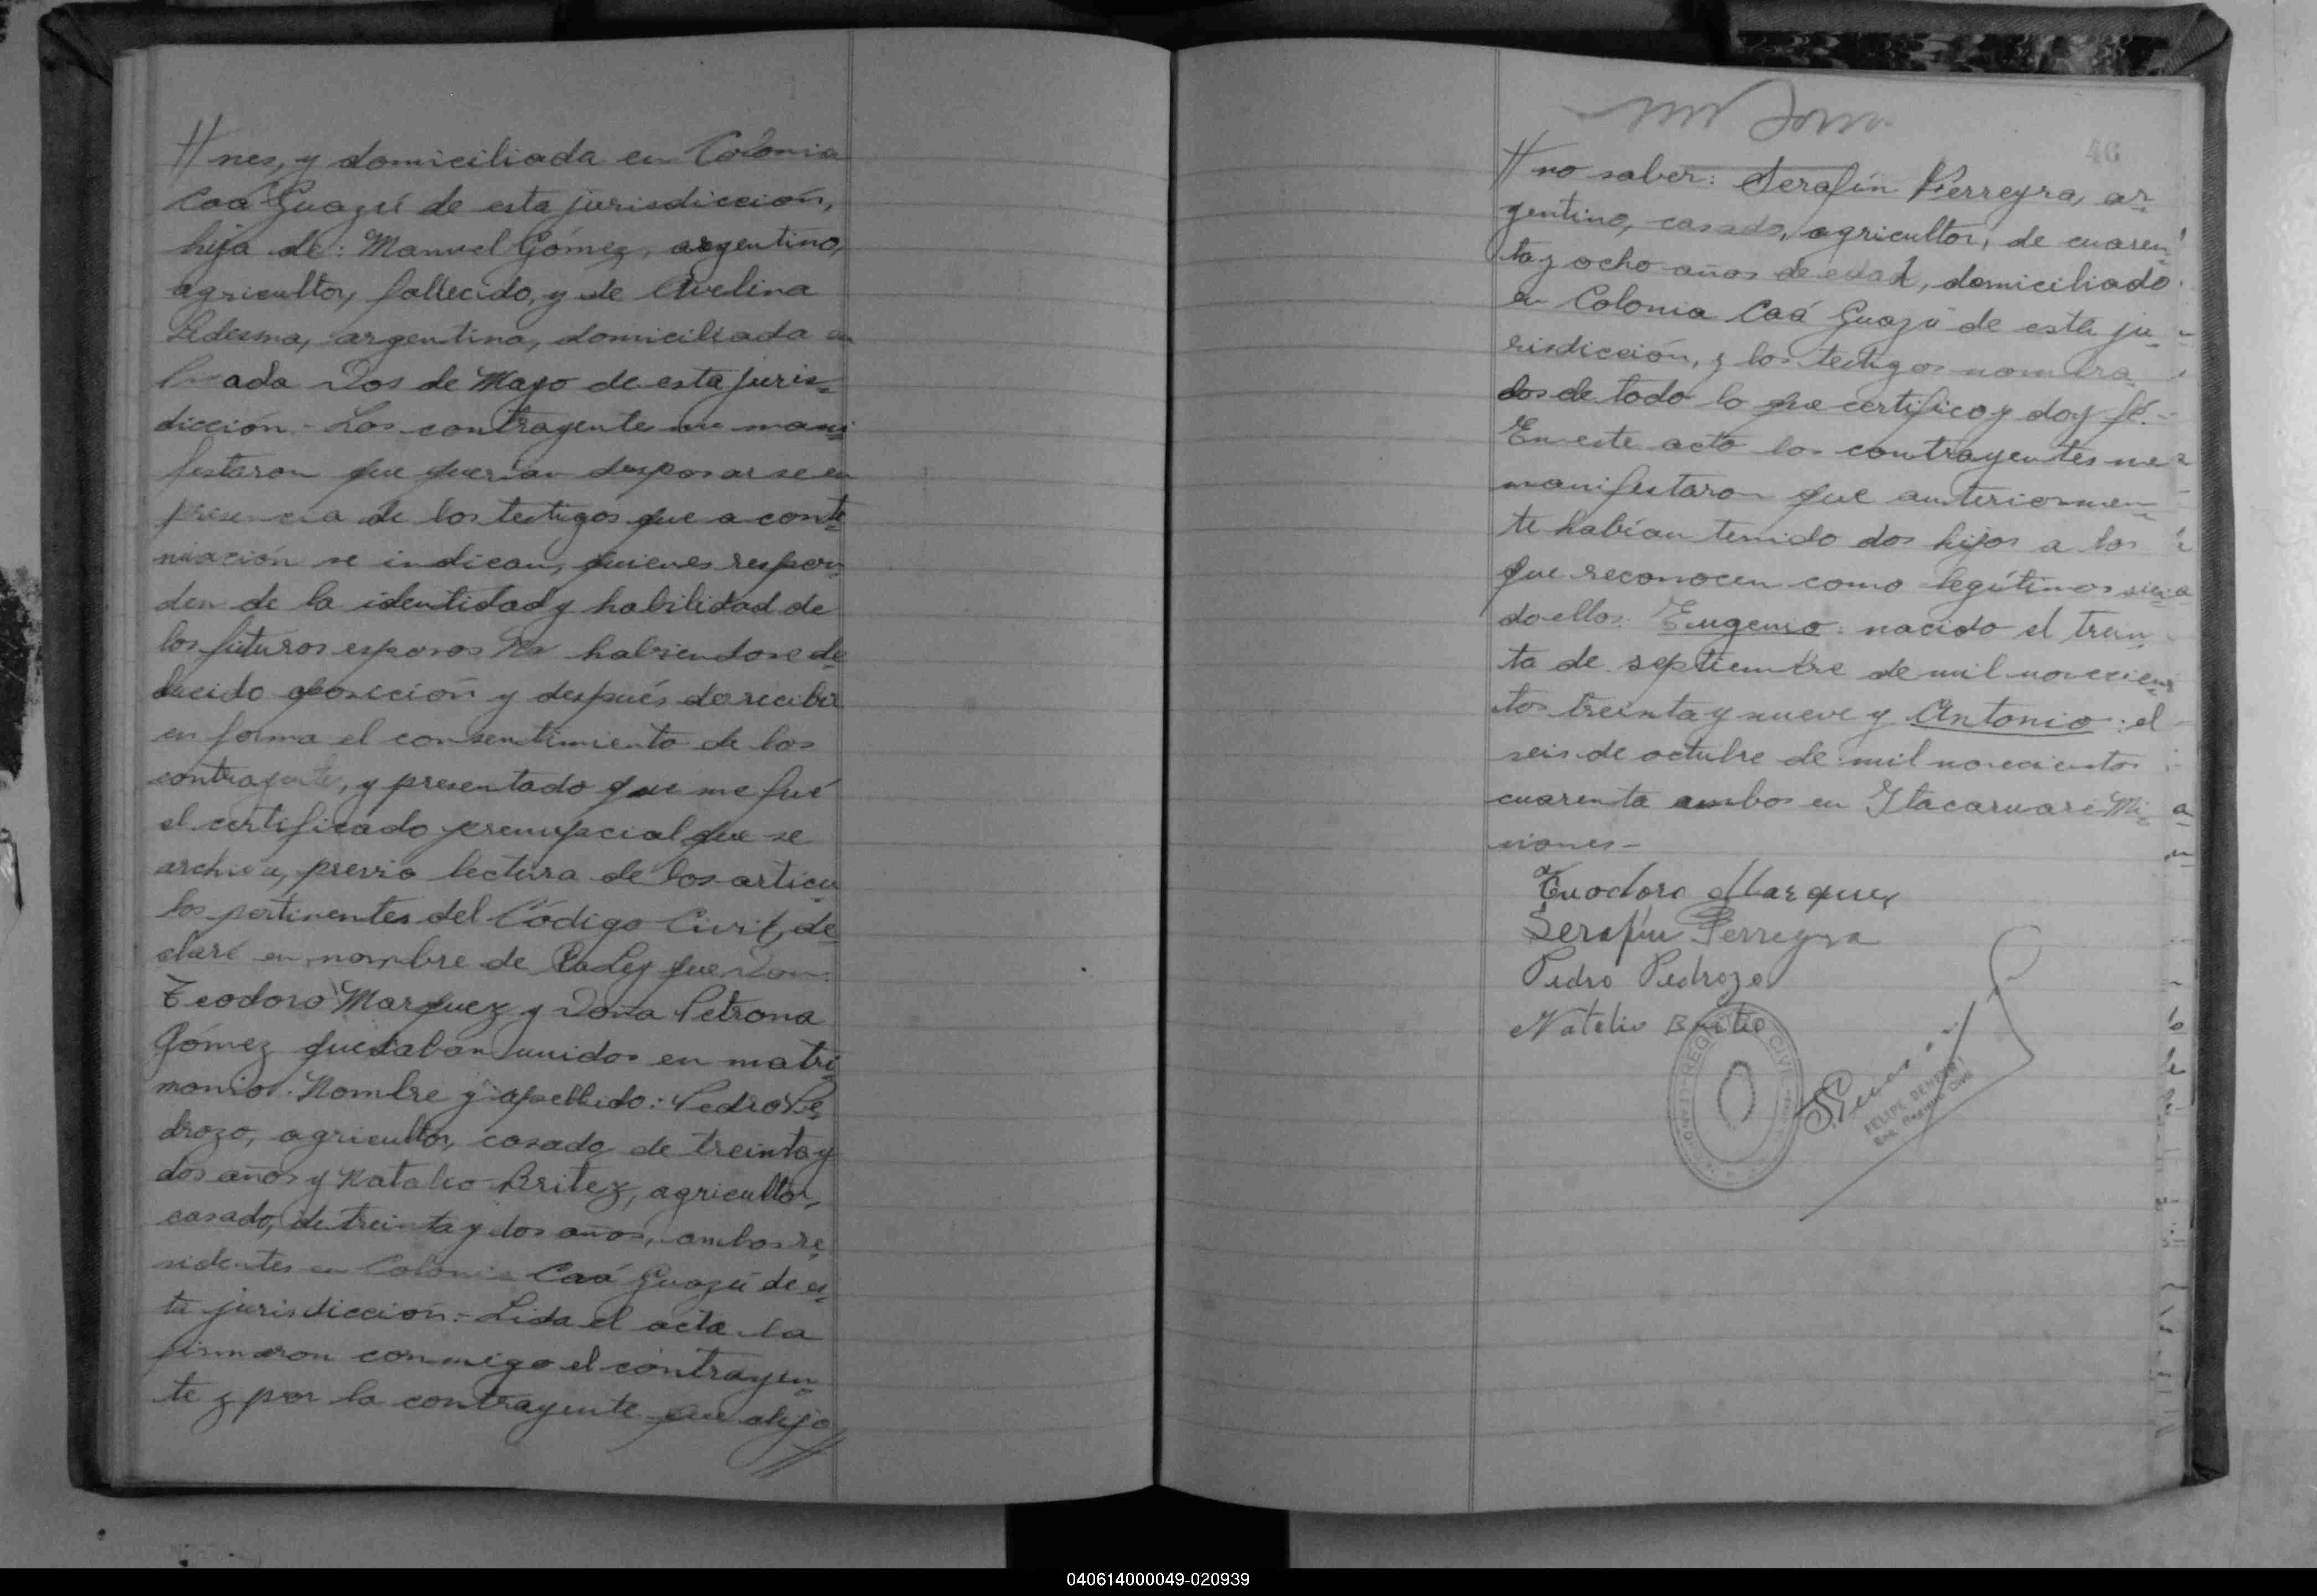 // nes, y domiciliada en Colonia
Caá Guazú de esta jurisdicción,
hija de: Manuel Gómez, argentino,
agricultor, fallecido, y de Avelina
Ledesma, argentina, domiciliada en
Dos de Mayo de esta juris-
dicción - Los contrayentes me mani
festaron que querian desposarse en
presencia de los testigos que a conti-
nuación se indican, quienes respon-
den de la identidad y habilidad de
los futuros esposos No habiendose de
ducido oposición y después de recibir
en forma el consentimiento de los
contrayentes, y presentado que me fué
el certificado prenupcial que se
archiva, previo lectura de los articu
los pertinentes del Código Civil, de-
claré en nombre de La Ley que Don:
Teodoro Marquez y Doña Petrona
Gómez quedaban unidos en matri
monios. Nombre y apellido: Pedro Pe
drozo, agricultor, casado de treinta y
dos años y Natalio Britez, agricultor,
casado, de treinta y dos años, ambos re
sidentes en Colonia Caá Guazú de es
ta jurisdicción:- Lida el acta la
firmaron conmigo el contrayen
te y por la contrayente que alejo //
46
// no saber: Serafín Pierreyra, ar-
gentino, casado, agricultor, de cuaren
ta y ocho años de edad, domiciliado
en Colonia Caá Guazú de esta ju-
risdicción, y los testigos nombra-
dos de todo lo que certifico y doy fé.-
En este acto los contrayentes me
manifestaron que anteriormen-
te habían tenido dos hijos a los
que reconocen como legítimos sien
do ellos: Eugenio: nacido el trein-
ta de septiembre de mil novecien
tos treinta y nueve y Antonio: el
seis de octubre de mil novecientos
cuarenta ambos en Itacaruaré Mi-
siones -
Teodoro Marquez
Serafín Perreyra
Pedro Pedrozo
Natalio Britez
REGISTRO CIVIL
FELIPE
Enc. Registro Civil
040614000049-020939